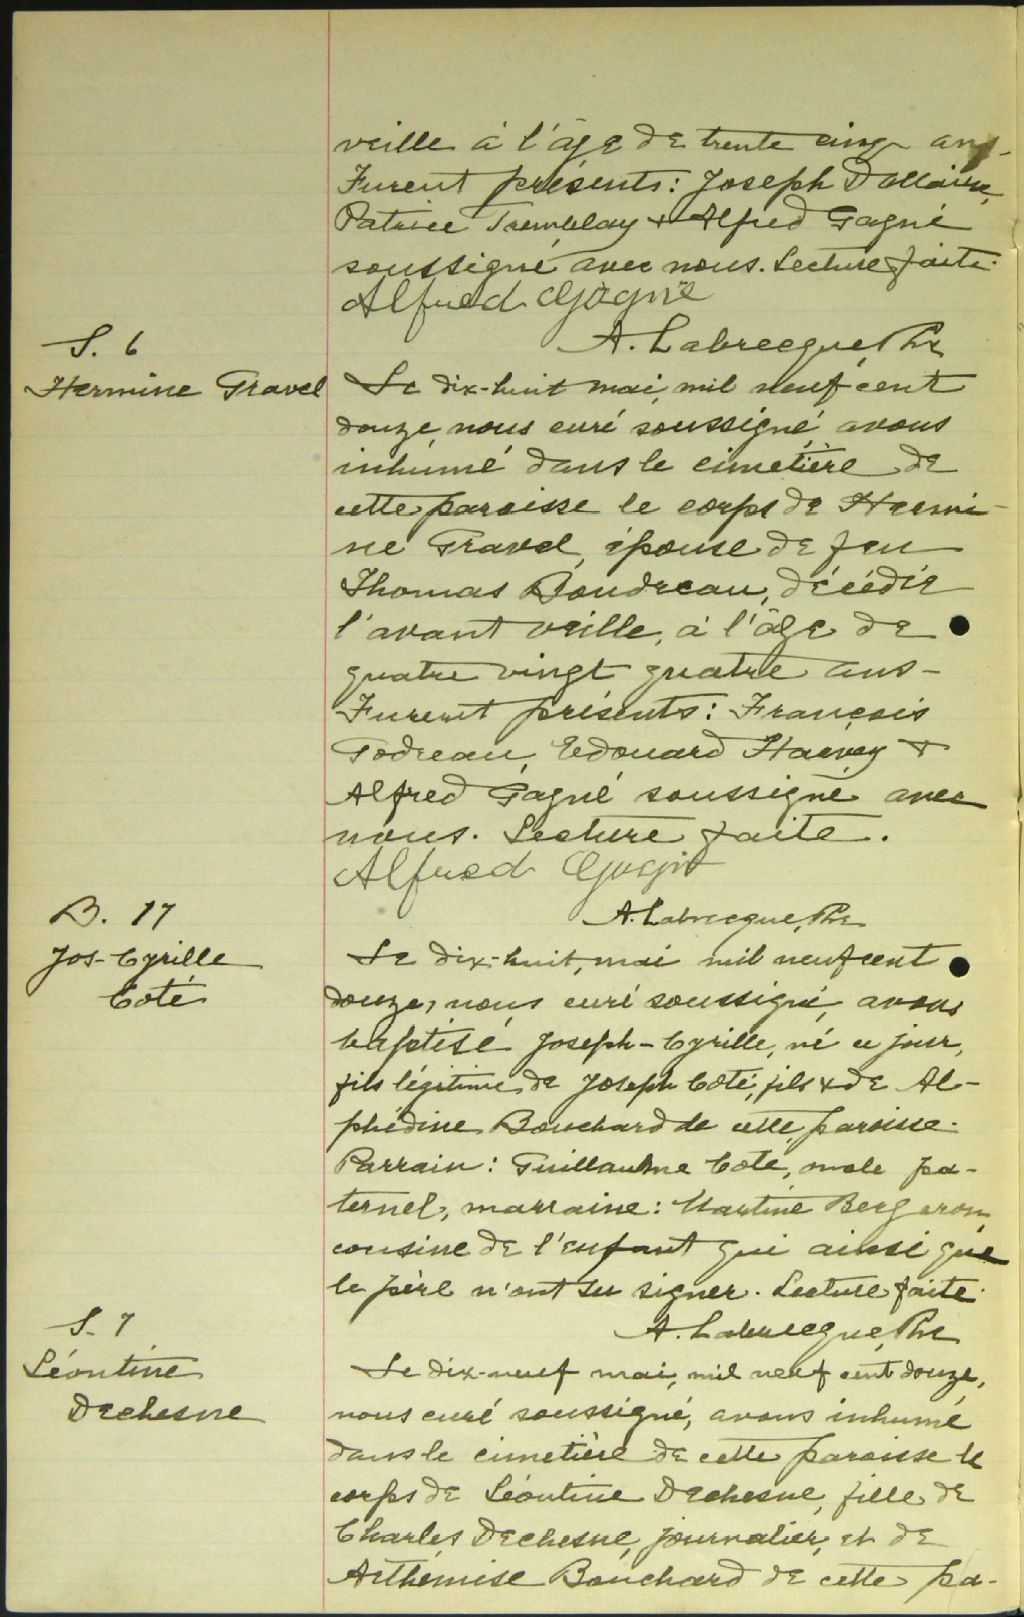 veille à l'âge de trente cinq ans-
Furent présents: Joseph Dallaire,
Patrice Tremblay & Alfred Gagné
soussigné avec nous. Lecture faite.
Alfred Gagné
A. Labrecque, Ptr
S. 6
Hermine Gravel
Le dix-huit mai, mil neuf cent
douze, nous curé soussigné, avons
inhumé dans le cimetière de
cette paroisse le corps de Hermi-
ne Gravel, épouse de feu
Thomas Boudreau, décédée
l'avant veille, à l'âge de
quatre vingt quatre ans-
Furent présents: François
Godreau, Edouard Harvey &
Alfred Gagné soussigné avec
nous. Lecture faite.
Alfred Gagné
A. Labrecque, Ptr
B. 17
Jos-Cyrille
Coté
Le dix-huit, mai mil neuf cent
douze, nous curé soussigné, avons
baptisé Joseph-Cyrille, né ce jour,
fils légitime de Joseph Coté, fils & de Al-
phédine Bouchard de cette paroisse.
Parrain: Guillaume Coté, oncle pa-
ternel, marraine: Martine Bergeron,
cousine de l'enfant qui ainsi que
le père n'ont su signer. Lecture faite.
A. Labrecque, Ptr
S. 7
Léontine
Dechesne
Le dix-neuf mai, mil neuf cent douze,
nous curé soussigné, avons inhumé
dans le cimetière de cette paroisse le
corps de Léontine Dechesne, fille de
Charles Dechesne, journalier, et de
Arthémise Bouchard de cette pa-